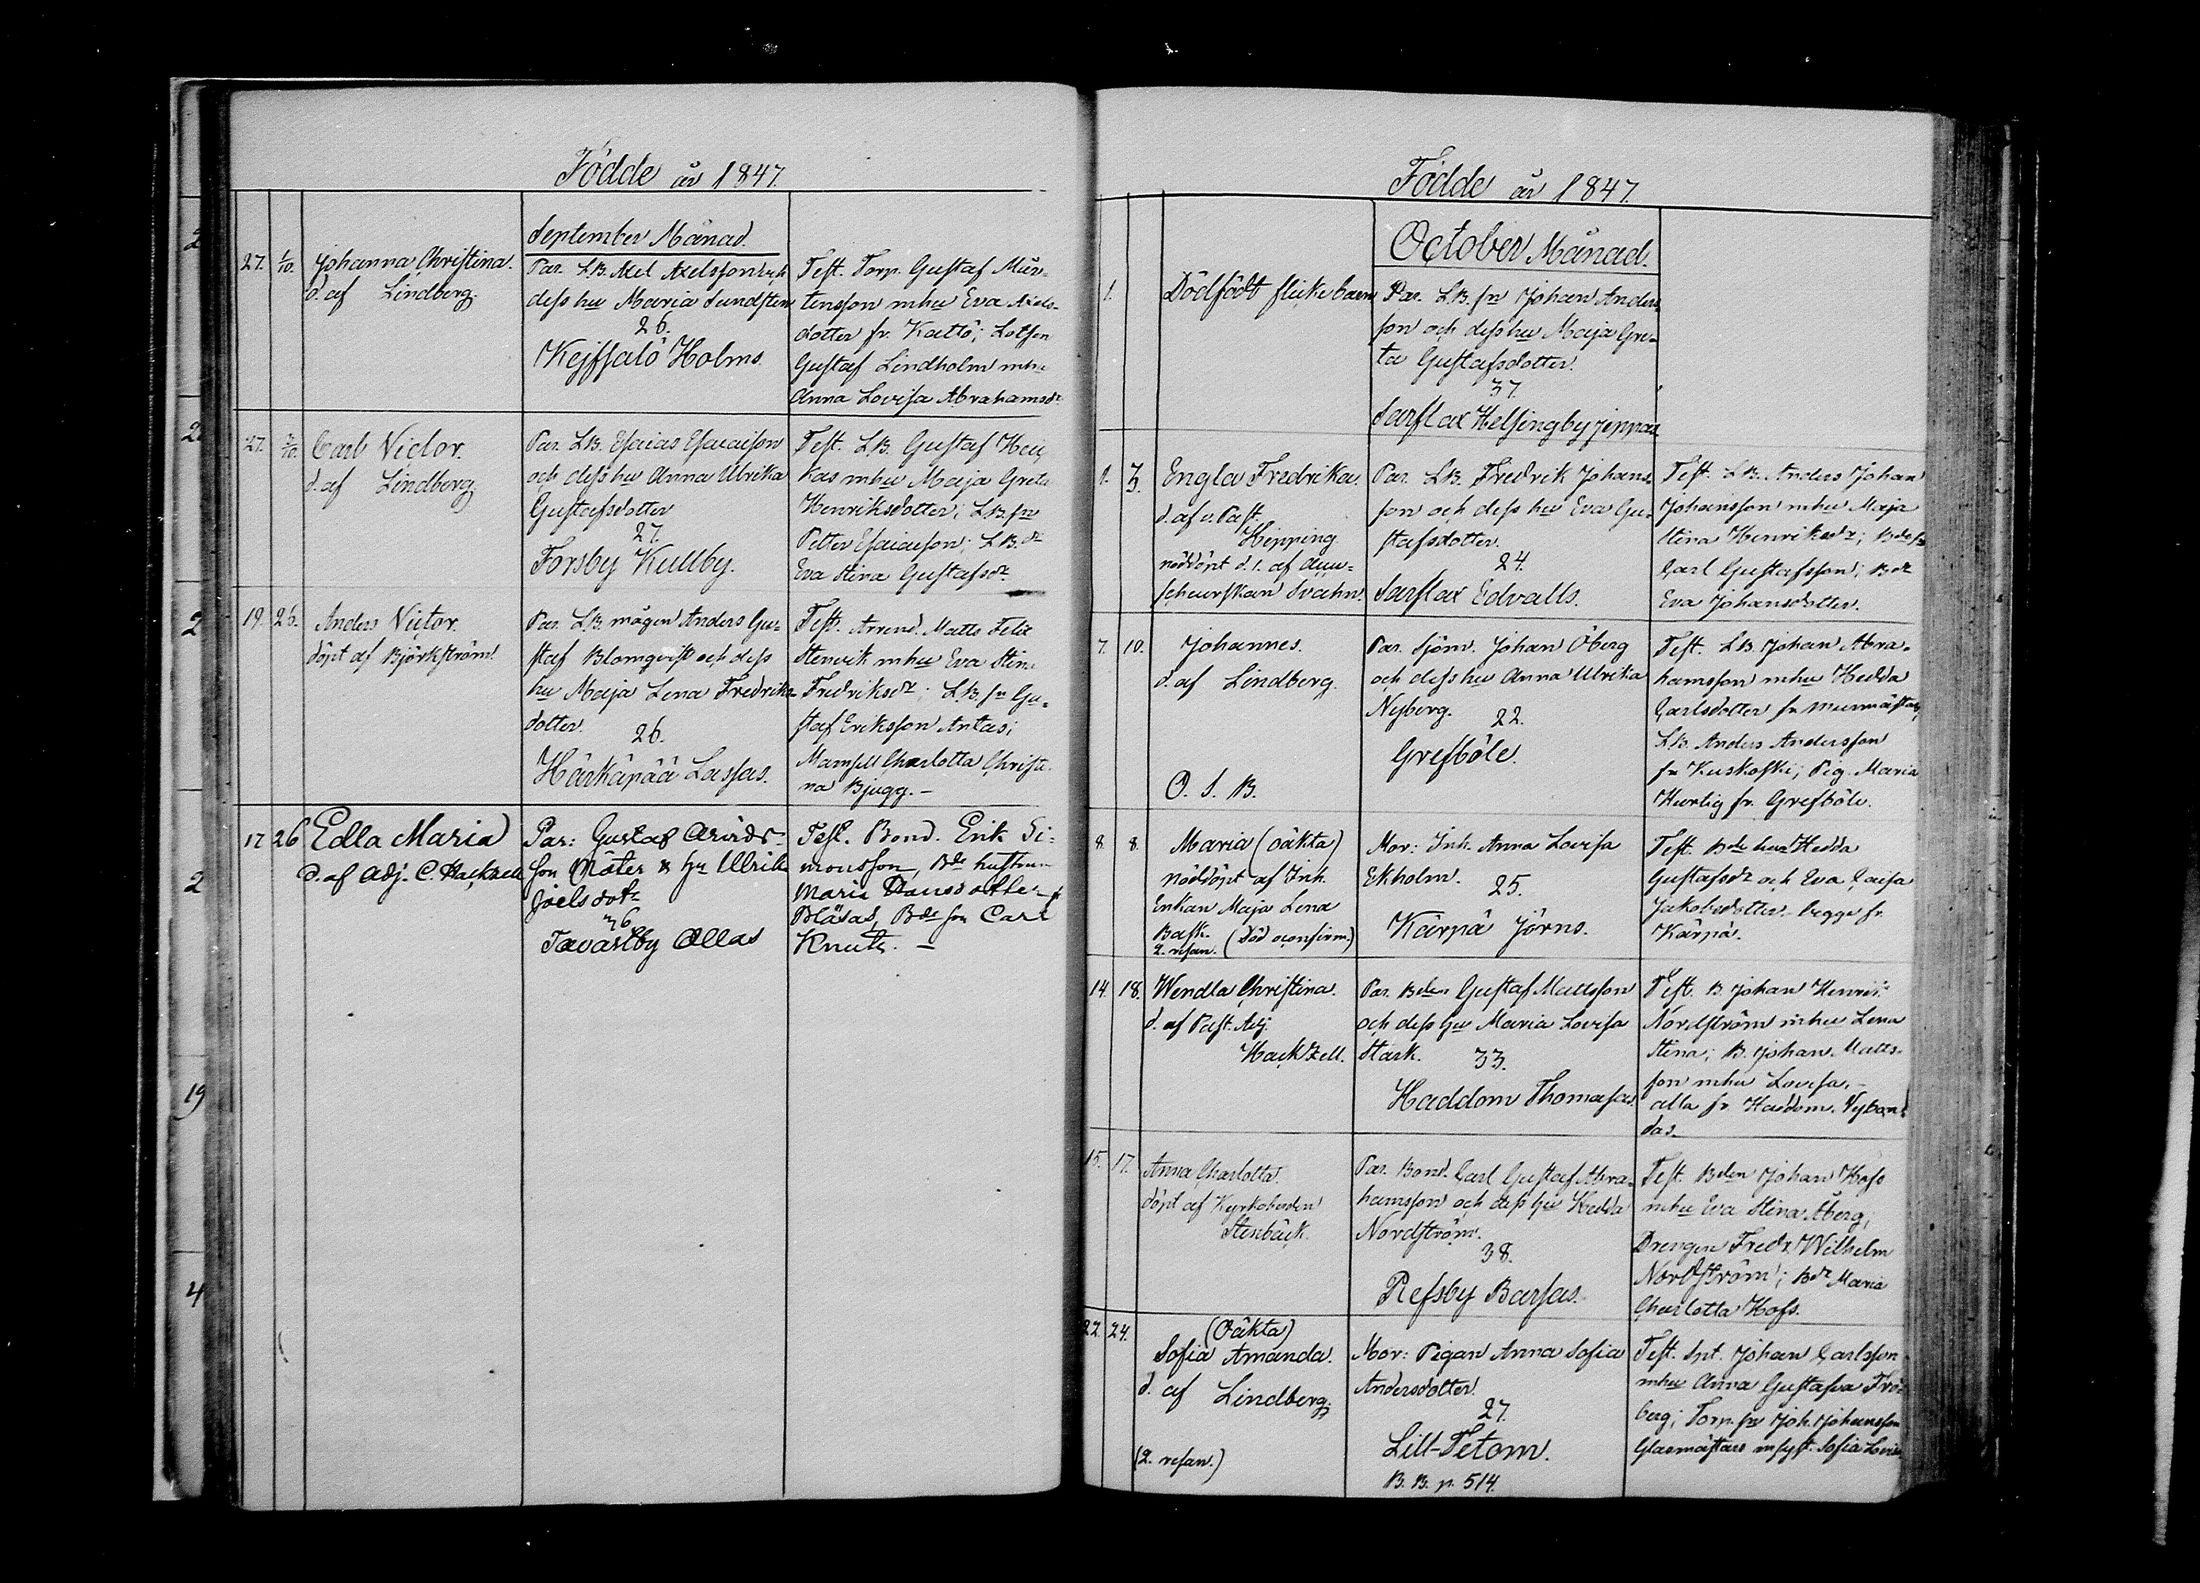 Födde år 1847.
September Månad.
27. 1/10. Johanna Christina.
d. af Lindberg.
Par. L.B. Axel Axelsson och
dess hu Maria Sundsten
26.
Kejfsalö Holms.
Test. Torp. Gustaf Mår-
tensson mhu Eva Axels-
dotter fr. Kattö; Lotsen
Gustaf Lindholm mhu
Anna Lovisa Abrahamsdr
27. /10. Carl Victor.
d. af Lindberg.
Par. L.B. Esaias Esaiasson
och dess hu Anna Ulrika
Gustafsdotter
27.
Forsby Kullby.
Test. L.B. Gustaf
kas mhu Maja Greta
Henriksdotter; L.B. sn
Petter Esaiasson; L.B. dr
Eva Stina Gustafsdr
19. 26. Anders Victor.
döpt af Björkström.
Par. L.B. mågen Anders Gu-
staf Blomqvist och dess
hu Maja Lena Fredriks-
dotter.
26.
Härkäpää Lassas.
Test. Arrend. Matts Felix
Stenvik mhu Eva Stina
Fredriksdr; L.B. sn Gu-
staf Eriksson Antas;
Mamsell Charlotta Christi-
na Bjugg. –
17 26 Edla Maria
d. af Adj. C. Hackzell
Par: Gustaf Arvids-
son Nöter & hu Ulrika
Joelsdotr
36
Tavastby Ollas
Test. Bond. Erik Si-
monsson, Bde hustrun
Maria Hansdotter fr
Bläsas, Bde sn Carl
Knuts. –
Födde år 1847.
October Månad.
1. Dödfödt flickebarn
Par. L.B. sn Johan Anders-
son och dess hu Maja Gre-
ta Gustafsdotter.
37.
Sarflax Helsingby Jeppas
1. 3. Engla Fredrika.
d. af v. Past.
Hipping
nöddöpt d. 1. af
Svahn.
Par. L.B. Fredrik Johans-
son och dess hu Eva Gu-
stafsdotter.
24.
Sarflax Edvalls.
Test. L.B. Anders Johan
Johansson mhu Maja
Stina Henriksdr; Bdesn
Carl Gustafsson; Bdr
Eva Johansdotter.
7. 10. Johannes.
d. af Lindberg.
O. S. B.
Par. Sjöm. Johan Öberg
och dess hu Anna Ulrika
Nyberg. 22.
Grefböle.
Test. L.B. Johan Abra-
hamsson mhu Hedda
Carlsdotter fr
L.B. Anders Andersson
fr Kuskoski; Pig. Maria
Hurtig fr. Grefböle.
8. 8. Maria (oäkta)
nöddöpt af Inh.
Enkan Maja Lena
Bask.
2. resan. (Död oconfirm.)
Mor: Inh. Anna Lovisa
Ekholm. 25.
Kärpä Jörns.
Test. Bde hu Hedda
Gustafsdr och Eva Caisa
Jakobsdotter. begge fr.
Kärpä.
14. 18. Wendla Christina.
d. af Past. Adj.
Hackzell.
Par. Bden Gustaf Mattsson
och dess hu Maria Lovisa
Stark. 33.
Haddom Thomasas.
Test. B. Johan Henrik
Nordström mhu Lena
Stina; B. Johan Matts-
son mhu Lovisa, –
alla fr Haddom. Nybon-
das.
15. 17. Anna Charlotta.
döpt af Kyrkoherden
Stenbäck.
Par. Bond. Carl Gustaf Abra-
hamsson och dess hu Hedda
Nordström.
38.
Refsby Barsas.
Test. Bden Johan Hofs
mhu Eva Stina Åberg,
Drengen Fredr. Wilhelm
Nordström; Bdr Maria
Charlotta Hofs.
22. 24. (Oäkta)
Sofia Amanda.
d. af Lindberg.
(2. resan.)
Mor: Pigan Anna Sofia
Andersdotter.
27.
Lill-Tetom.
B. B. p. 514.
Test. Spt. Johan Carlsson
mhu Anna Gustafva Frö-
berg; Torp. sn Joh. Johansson
Glasmästars m syst. Sofia Lovisa